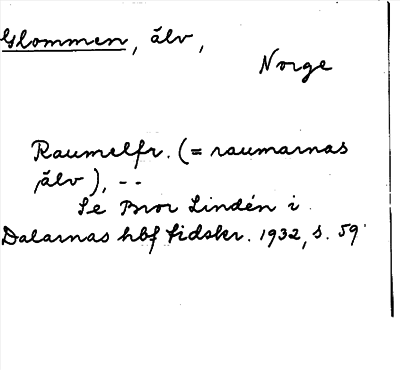 Glommen, älv,
Norge
Raumelfr. (= raumarnas
älv), --
Se Bror Lindén i
Dalarnas hbf tidskr. 1932, s. 59